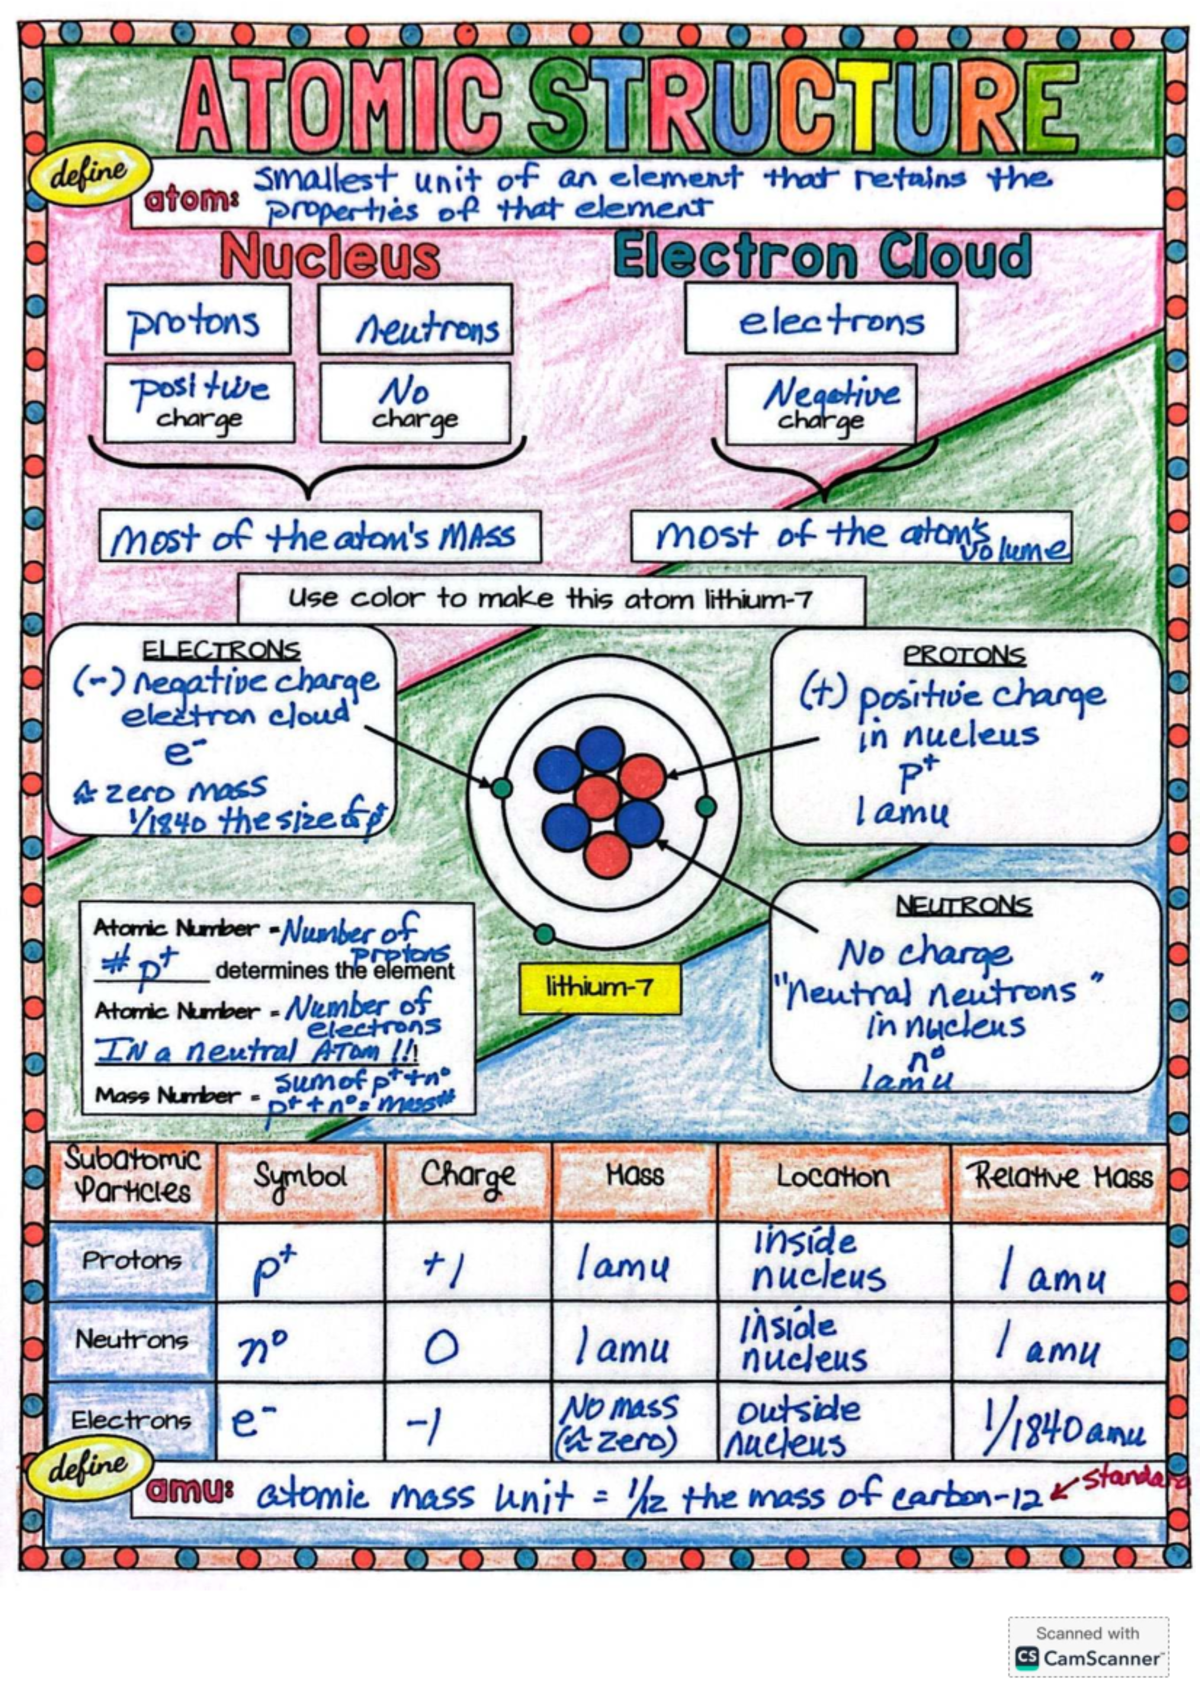 ATOMIC STRUCTURE
define
atom: smallest unit of an element that retains the
properties of that element
Nucleus
Electron Cloud
protons
neutrons
electrons
positive
charge
No
charge
Negative
charge
most of the atom's MASS
most of the atom's
volume
Use color to make this atom lithium-7
ELECTRONS
(-) negative charge
electron cloud
e⁻
≈ zero mass
1/1840 the size of p⁺
PROTONS
(+) positive charge
in nucleus
p⁺
1 amu
NEUTRONS
No charge
"neutral neutrons"
in nucleus
n⁰
1 amu
lithium-7
Atomic Number = Number of
protons
# p⁺ determines the element
Atomic Number = Number of
electrons
IN a neutral ATom !!!
Mass Number = sum of p⁺ + n⁰
p⁺ + n⁰ = mass #
Subatomic
Particles
Symbol
Charge
Mass
Location
Relative Mass
Protons
p⁺
+1
1 amu
inside
nucleus
1 amu
Neutrons
n⁰
0
1 amu
inside
nucleus
1 amu
Electrons
e⁻
-1
No mass
(≈ zero)
outside
nucleus
1/1840 amu
define
amu: atomic mass unit = 1/12 the mass of carbon-12 ↙ standard
Scanned with
CS CamScanner